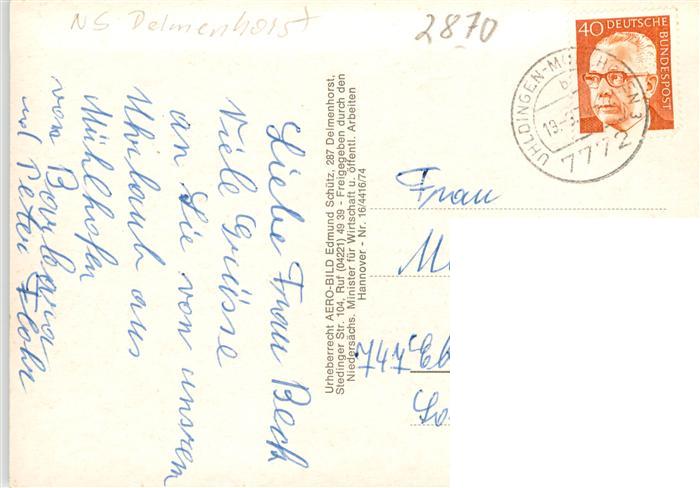 NS Delmenhorst
2870
40 DEUTSCHE
BUNDESPOST
UHLDINGEN-MÜHLHOFEN 3
19.
7772
Liebe Frau Beck
Viele Grüsse
an Sie von unsrem
Urlaub aus
Mühlhofen
von Barbara
und Peter Flohr
Urheberrecht AERO-BILD Edmund Schütz, 287 Delmenhorst,
Stedinger Str. 104, Ruf (04221) 49 39 - Freigegeben durch den
Niedersächs. Minister für Wirtschaft u. öffentl. Arbeiten
Hannover - Nr. 16/4416/74
Frau
747 Eb